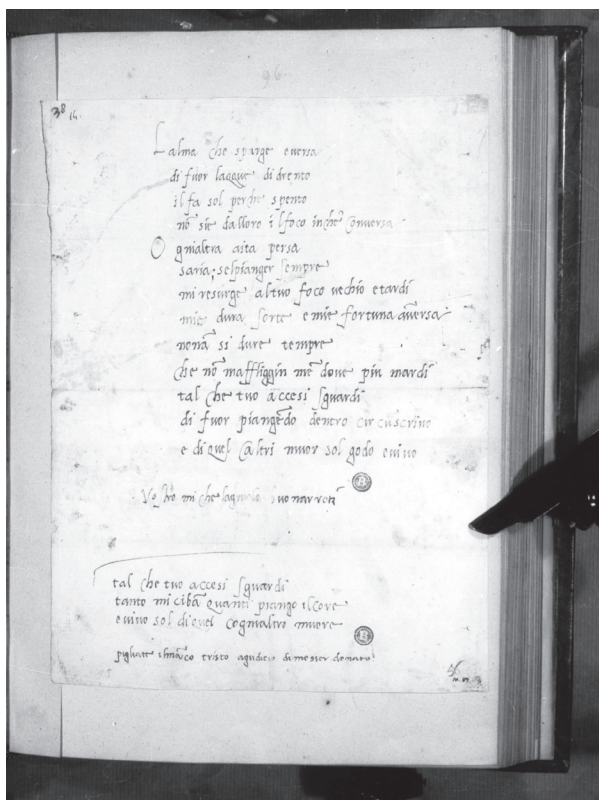 96
38
Lalma che sparge e versa
di fuor lacque didrento
il fa sol perche spento
nō sie dalloro il foco in chē conversa
Ognialtra aita persa
saria; selpianger sempre
mi resurge altuo foco vechio e tardi
mie dura sorte e mie fortuna aversa
nonā si dure tempre
che nō maffliggin mē dove piu mardi
tal che tuo accesi sguardi
di fuor piangēdo dentro circuscrivo
e di quel caltri muor sol godo e vivo
tal che tuo accesi sguardi
tanto mi cibā quanti piango il core
e vivo sol di quel cognialtro muore
pigliate il māco tristo a gudicio di messer donato